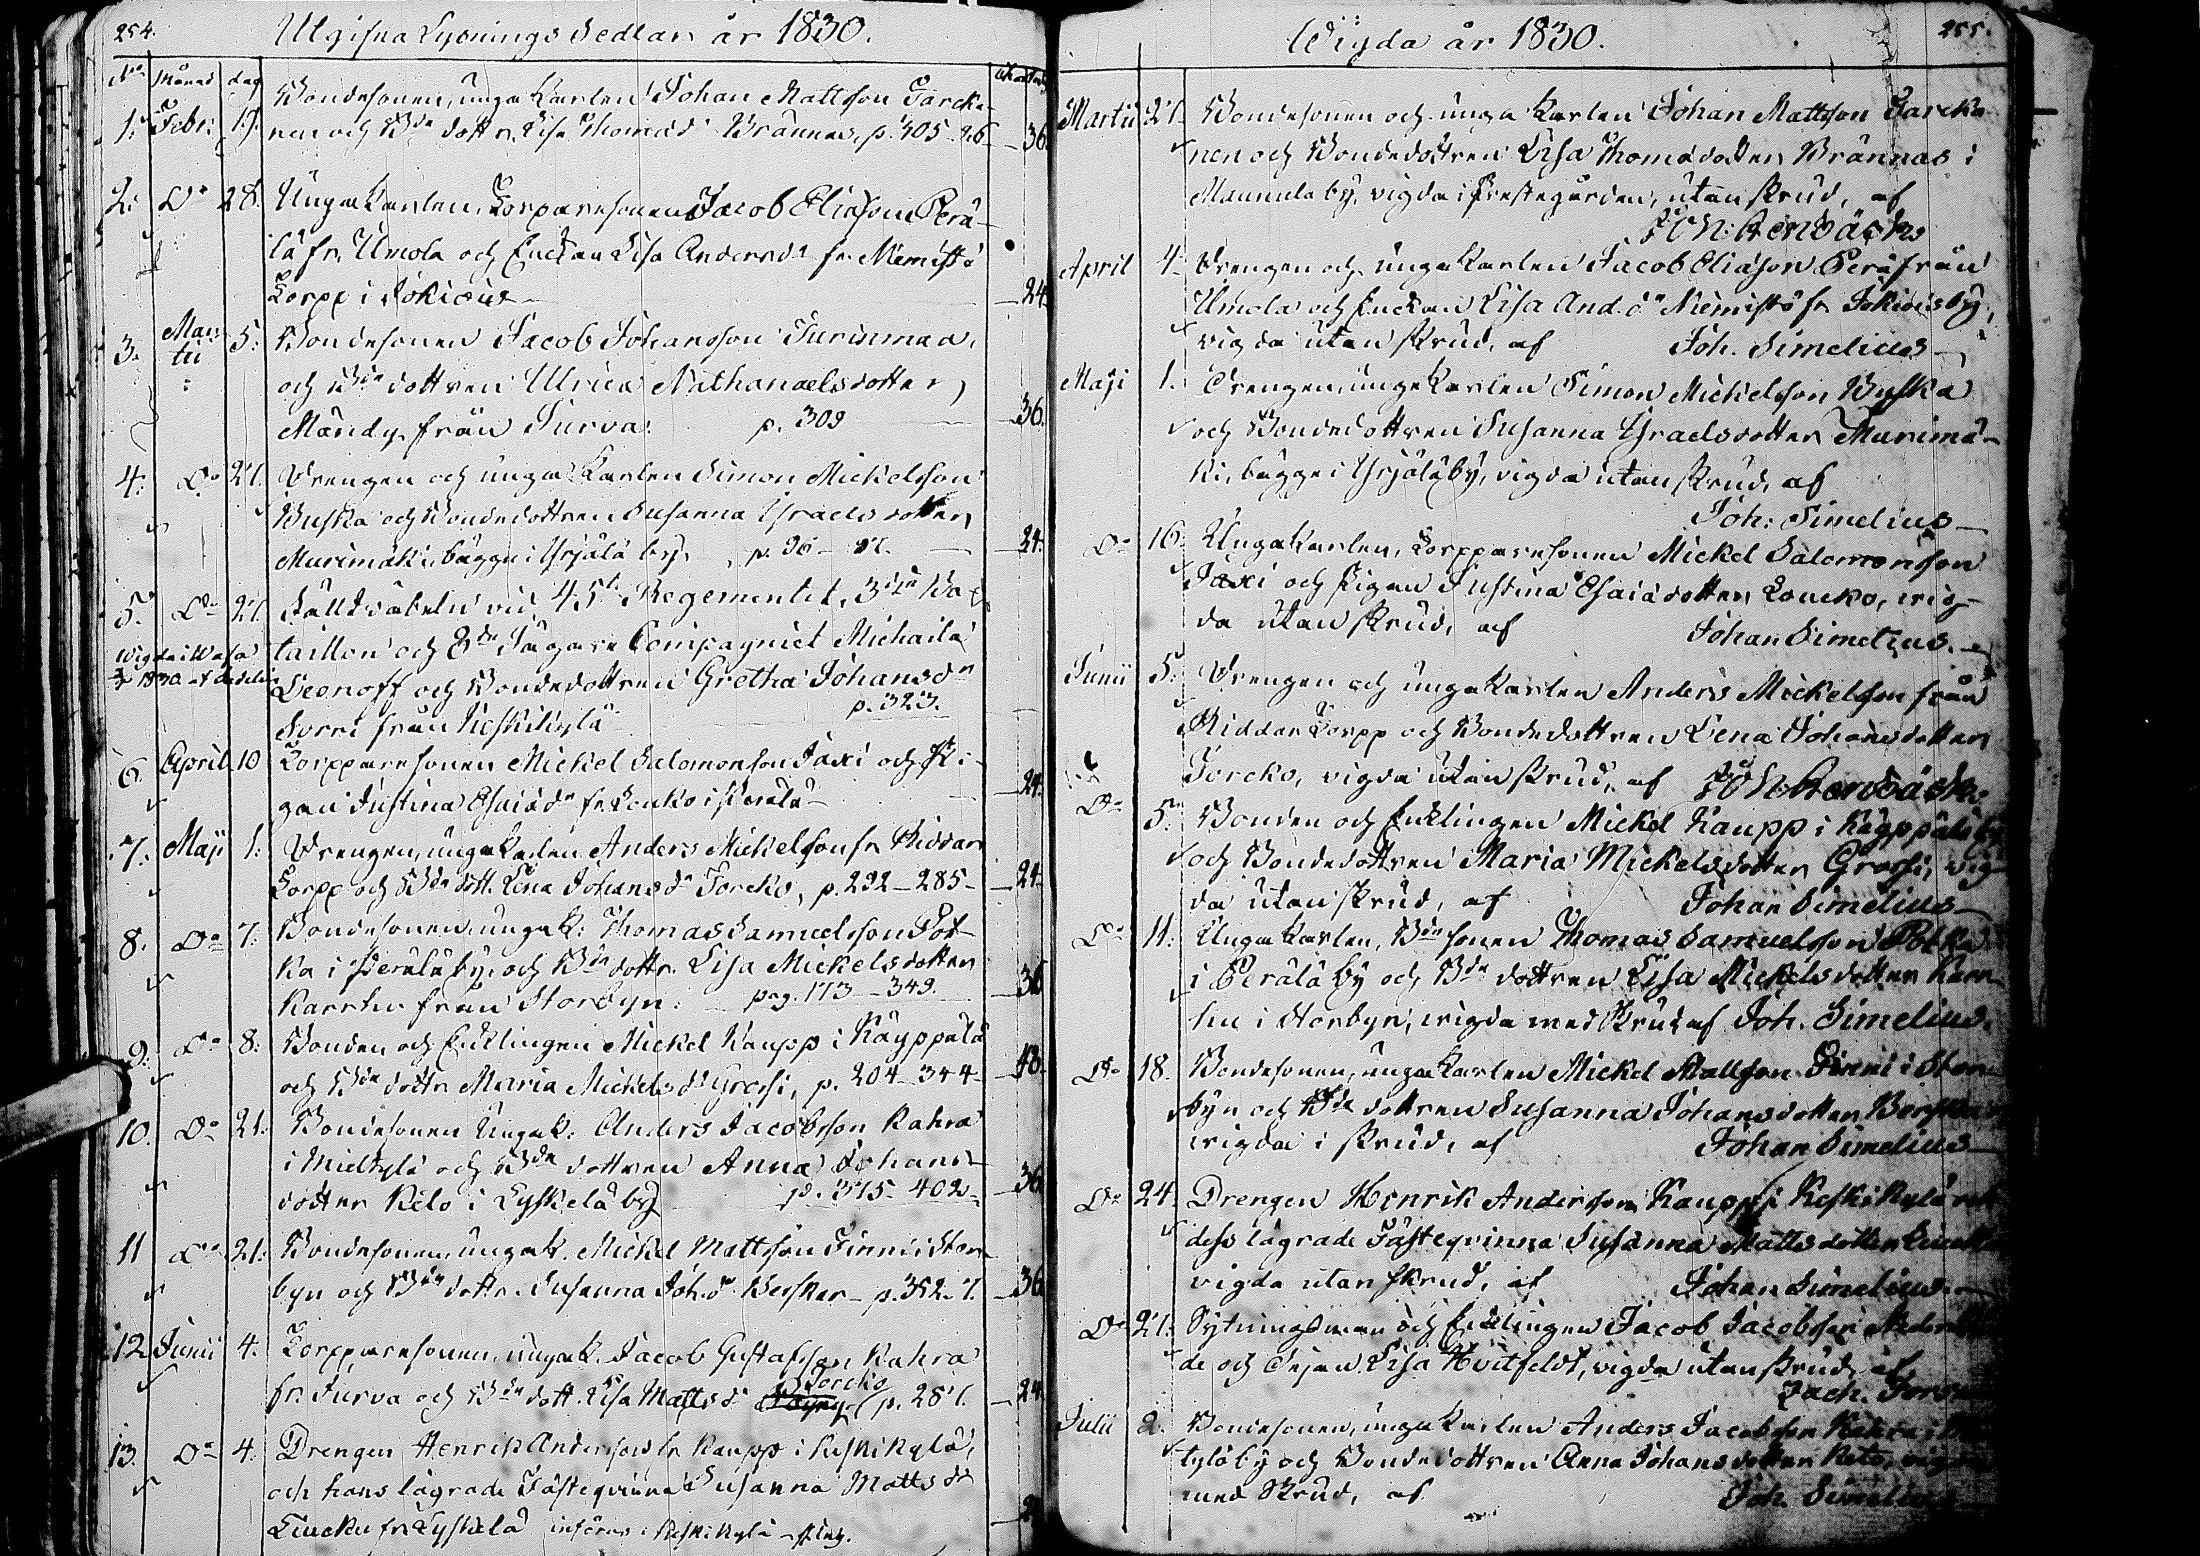 254.
Utgifna Lysnings Sedlar år 1830.
No Månad dag
Bondesonen, unga Karlen Johan Mattsson Jarcka-
1. Febr: 19. nen och Bde dottr. Lisa Thomasdr Brännas, p. 405-
36.
2. Do 28. Unga Karlen, Torparesonen Jacob Eliasson Perä-
lä fr. Umola och Enckan Lisa Andersdr fr. Niemistö
Torpp i Jokicius
24
3. Mar-
tii 5. Bondesonen Jacob Johansson Jurinmaa,
och Bde dottren Ulrica Nathanaelsdotter
Mändy, från Jurva. p. 309
36.
4. Do 21. Drengen och unga Karlen Simon Mickelsson
Buska och Bondedottren Susanna Israelsdotter
Murimäki, bägge i Yrjälä by, p. 96-
24.
5. Do 21. vid 45te Regementet, 3dje Ba-
Wigda i Wasa
1830 af
taillon och 8de Jägare Compagniet Michaila
Leonoff och Bondedottren Gretha Johansdr
Sorri från Keskikylä p. 323.
6. April 10 Torpparesonen Mickel Salomonson Jaxi och Pi-
gan Justina Esaiædr fr. Louko i Perälä
24.
7. Maji 1. Drengen, unga Karlen Anders Mickelson fr. Riddar
Torpp och Bde dott. Lena Johansdr Jorcko, p. 292-285-
24.
8. Do 7. Bondesonen, unga K. Thomas Samuelsson Pot-
ka i Perälä by, och Bde dottr. Lisa Mickelsdotter
Karrhu från Storbyn: pag. 173-349.
36
9. Do 8. Bonden och Encklingen Mickel Kaupp i Käyppälä
och Bde dottr. Maria Mickelsdr Grossi, p. 204-344-
48.
10. Do 21. Bondesonen Unga K. Anders Jacobsson Kahra
i Mieltylä och Bde dottren Anna Johans-
dotter Keto i Lyskelä by p. 315-402-
36
11 Do 21. Bondesonen, unga K. Mickel Mattsson Finni i Stor-
byn och Bde dottr. Susanna Joh.dr Bersker - p. 352-
36
12. Junii 4. Torpparesonen, unga K. Jacob Gustafsson Kahra
fr. Jurva och Bde dott. Lisa Mattsdr Jorcko p. 281.
24.
13. Do 4. Drengen Henrik Andersson fr. Kaupp i Keskikylä,
och hans lägrade Fästeqvinna Susanna Mattsdr
Luucku fr. Lyskelä införas i Keskikylä
255.
Wigda år 1830.
Martii 21. Bondesonen och unga Karlen Johan Mattsson Jarcka
nen och Bondedottren Lisa Thomasdotter Brännas i
Mannula by, vigda i Prestegården, utan skrud, af
April 4. Drengen och unga Karlen Jacob Eliasson Perä från
Umola och Enckan Lisa And.dr Niemistö fr. Jokicius by,
vigda utan skrud, af Joh. Simelius
Maji 1. Drengen, unga Karlen Simon Mickelsson Buska
och Bondedottren Susanna Israelsdotter Murimä-
ki, bägge i Yrjälä by, vigda utan skrud, af
Joh: Simelius
Do 16. Unga Karlen, Torpparesonen Mickel Salomonson
Jaxi och Pigan Justina Esaiædotter Loucko, vig-
da utan skrud, af Johan Simelius.
Junii 5. Drengen och unga Karlen Anders Mickelson från
Riddar Torpp och Bondedottren Lena Johansdotter
Jorcko, vigda utan skrud, af
Do 5. Bonden och Encklingen Mickel Kaupp i Käyppälä by
och Bondedottren Maria Mickelsdotter Grossi, vig-
da utan skrud, af Johan Simelius
Do 11. Unga Karlen, Bde sonen Thomas Samuelsson Potka
i Perälä by och Bde dottren Lisa Mickelsdotter Karr-
hu i Storbyn, vigda med skrud af Joh. Simelius.
Do 18. Bondesonen, unga Karlen Mickel Mattsson Finni i Stor
byn och Bde dottren Susanna Johansdotter Bersker
vigda i skrud, af Johan Simelius
Do 24. Drengen Henrik Andersson Kaupp i Keskikylä och
dess lägrade Fästeqvinna Susanna Mattsdotter
vigda utan skrud, af Johan Simelius
Do 27. Sytningsman och Encklingen Jacob Jacobsson
de och Pigan Lisa Hvitfeldt, vigda utan skrud, af
Zach.
Julii 2. Bondesonen, unga Karlen Anders Jacobsson Kahra i
tylä by och Bondedottren Anna Johansdotter Keto, vigda
med Skrud, af Joh. Simelius